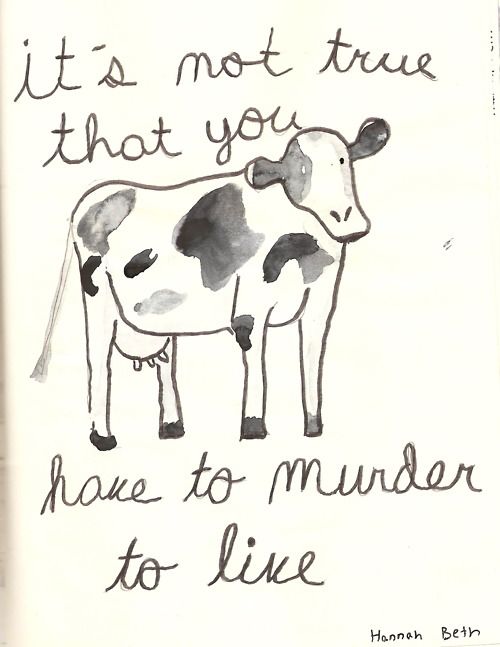 it's not true
that you
have to murder
to live
Hannah Beth